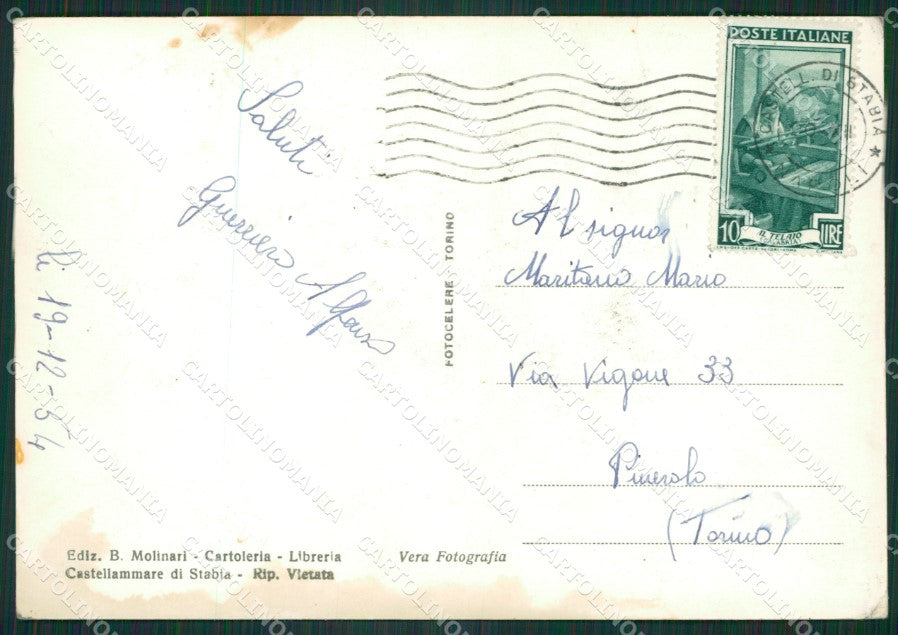 Saluti
Guerriero Alfonso
li 19-12-54
Ediz. B. Molinari - Cartoleria - Libreria
Castellammare di Stabia - Rip. Vietata
Vera Fotografia
FOTOCELERE TORINO
POSTE ITALIANE
10 LIRE
IL TELAIO
CASTELL. DI STABIA
Al signor
Maritano Mario
Via Vigone 33
Pinerolo
(Torino)
CARTOLINOMANIA